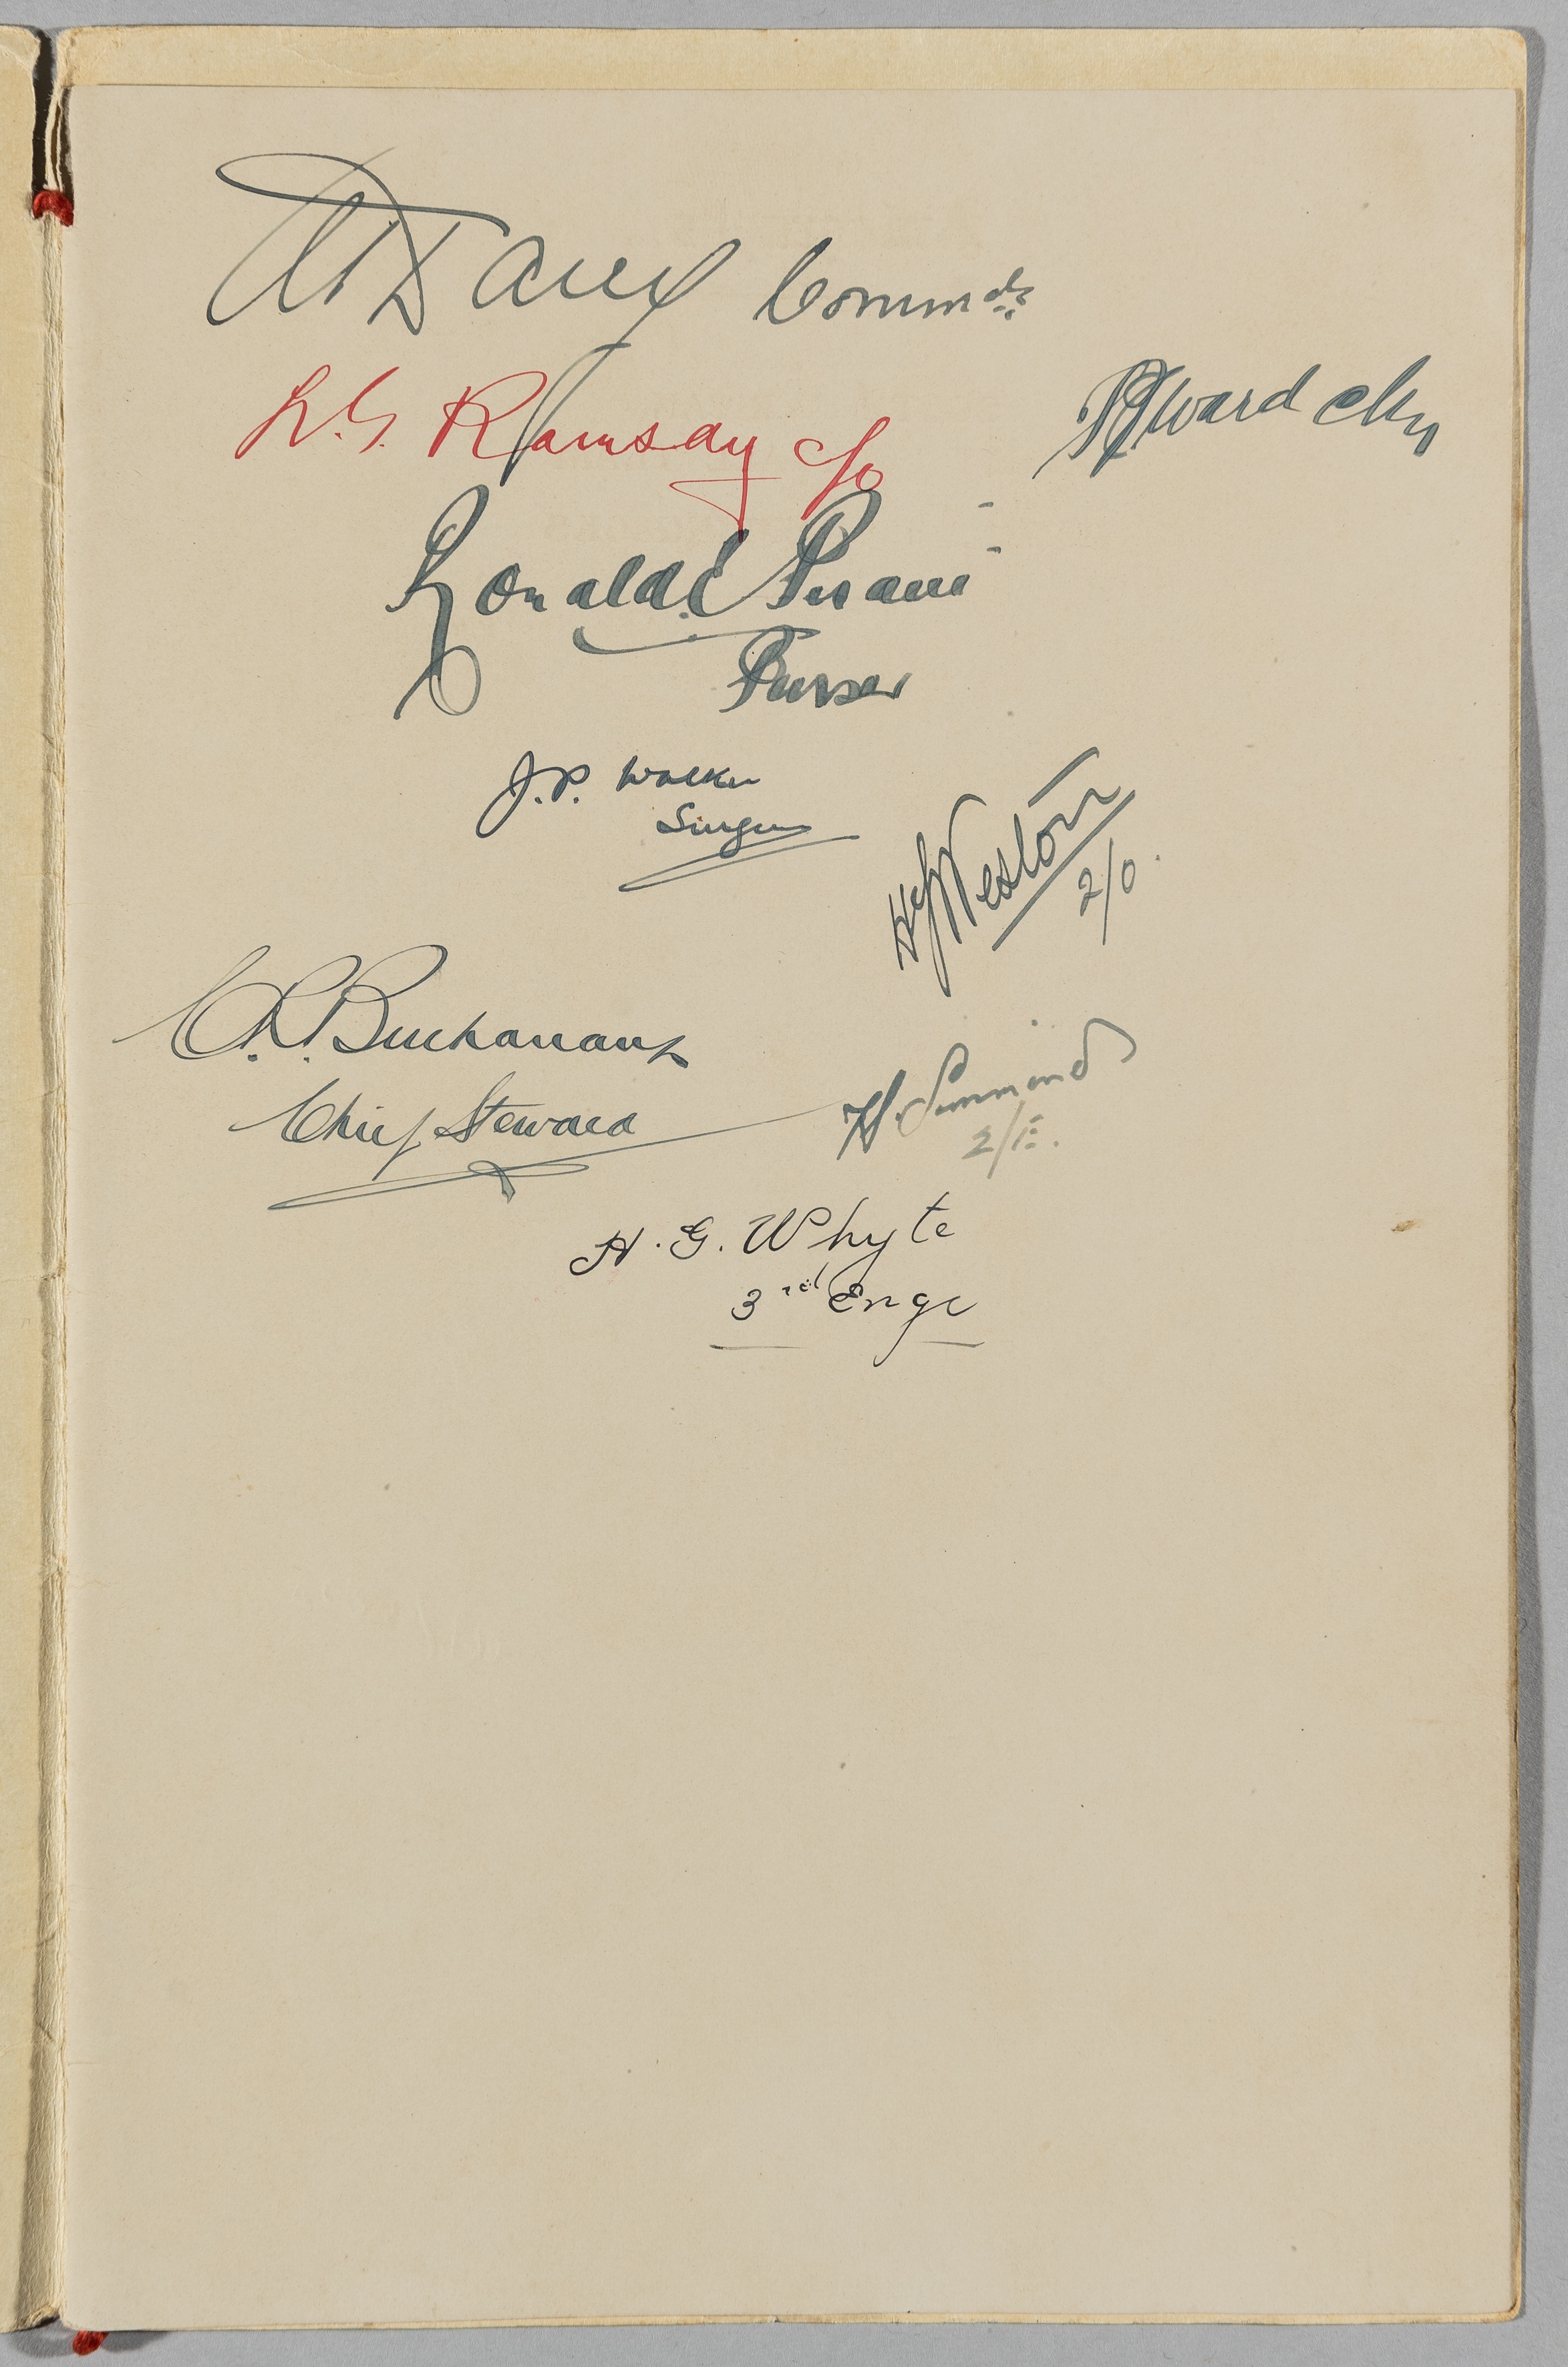 Davey Commdr
L. G. Ramsay C/O
Ward
Ronald E
Purser
J. P. Walker
Singer
Weston
2/O.
C. R. Buchanan
Chief Steward
H. Simmonds
2/E.
H. G. Whyte
3rd Engr